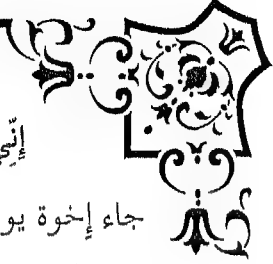 إِنِّي
جاء إخوة يو